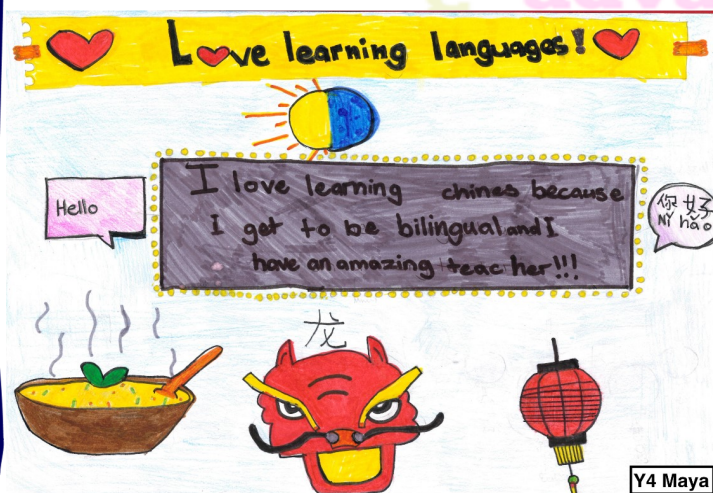 Love learning languages!
I love learning chines because
I get to be bilingual and I
have an amazing teacher!!!
Hello
你好
NY hǎo
龙
Y4 Maya